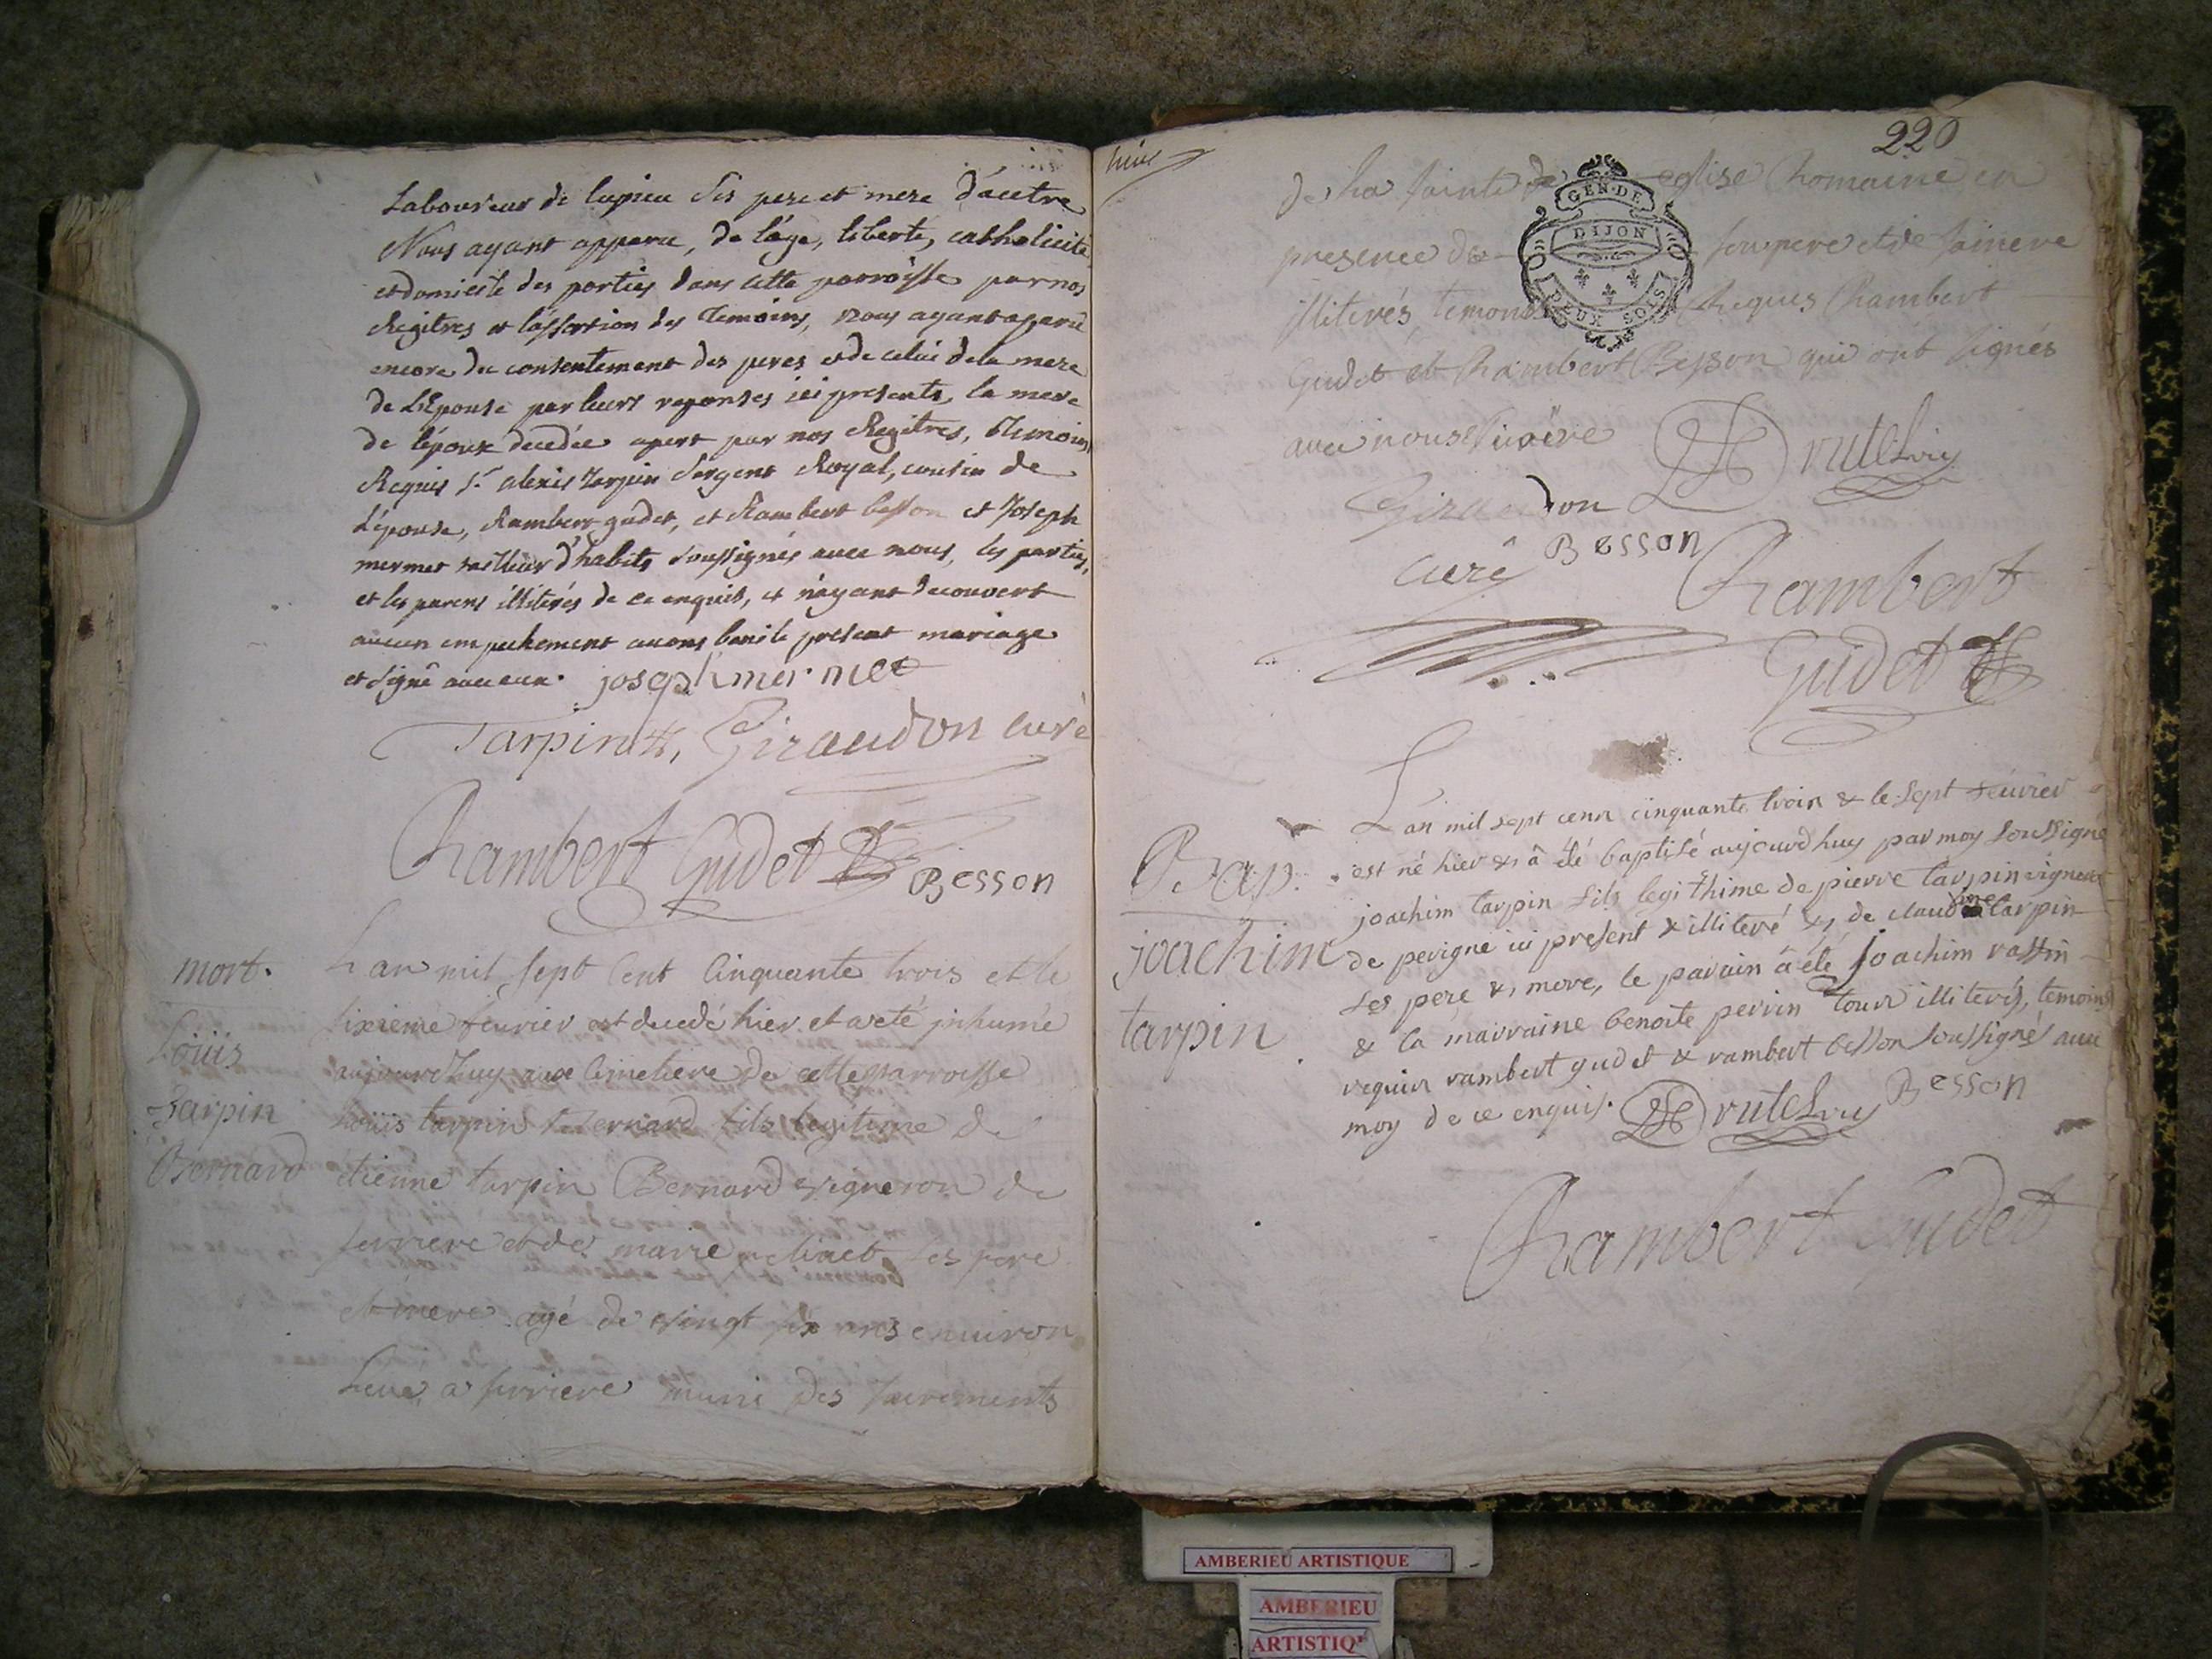 Laboureur de lupieu ses pere et mere d'autre
Nous ayant apparu, de l'age, liberte, catholicité
et domicile des parties dans cette parroisse par nos
Regitres et l'assertion des temoins, nous ayant aparu
encore du consentement des peres et de celui de la mere
de L'Epouse par leurs reponses ici presents, la mere
de l'époux decedée apert par nos Regitres, temoins
Requis Sr alexis tarpin sergent Royal, cousin de
L'épouse, Rambert gudet, et Rambert besson et Joseph
mermet tailleur d'habits soussignés avec nous, les parties,
et les parens illiterés de ce enquis, et n'ayant decouvert
aucun empechement avons beni le present mariage
et signé avec eux. joseph mermet
Tarpin Giraudon curé
Rambert Gudet Besson
mort.
Loüis
Tarpin
Bernard
L'an mil sept Cent Cinquante trois et le
sixieme fevrier est decedé hier et a eté inhumé
aujourd'huy aux Cimetiere de cette parroisse
Loüis tarpin Bernard fils legitime de
etienne tarpin Bernard vigneron de
ferriere et de marie ses pere
et mere agé de vingt six ans environ
a ferriere muni des sacrements
220
de La sainte eglise Romaine en
presence de son pere et de
illiterés temoins Requis Rambert
Gudet et Rambert Besson qui ont signés
avec nous
GEN. DE
DIJON
DEUX SOLS
Giraudon
curé
Besson
Rambert
Gudet
Bap.
joachim
tarpin
L'an mil sept cent cinquante trois & le sept fevrier
est né hier & â été baptisé aujourd'huy par moy soussigné
joachim tarpin fils legithime de pierre tarpin vigneron
de perigne ici present & illiteré & de claudine tarpin
ses pere & mere, le parain â été joachim rassin
& la marraine benoite perrin tous illiterés, temoins
requis rambert gudet & rambert besson soussignés avec
moy de ce enquis. Besson
Rambert Gudet
AMBERIEU ARTISTIQUE
AMBERIEU
ARTISTIQ